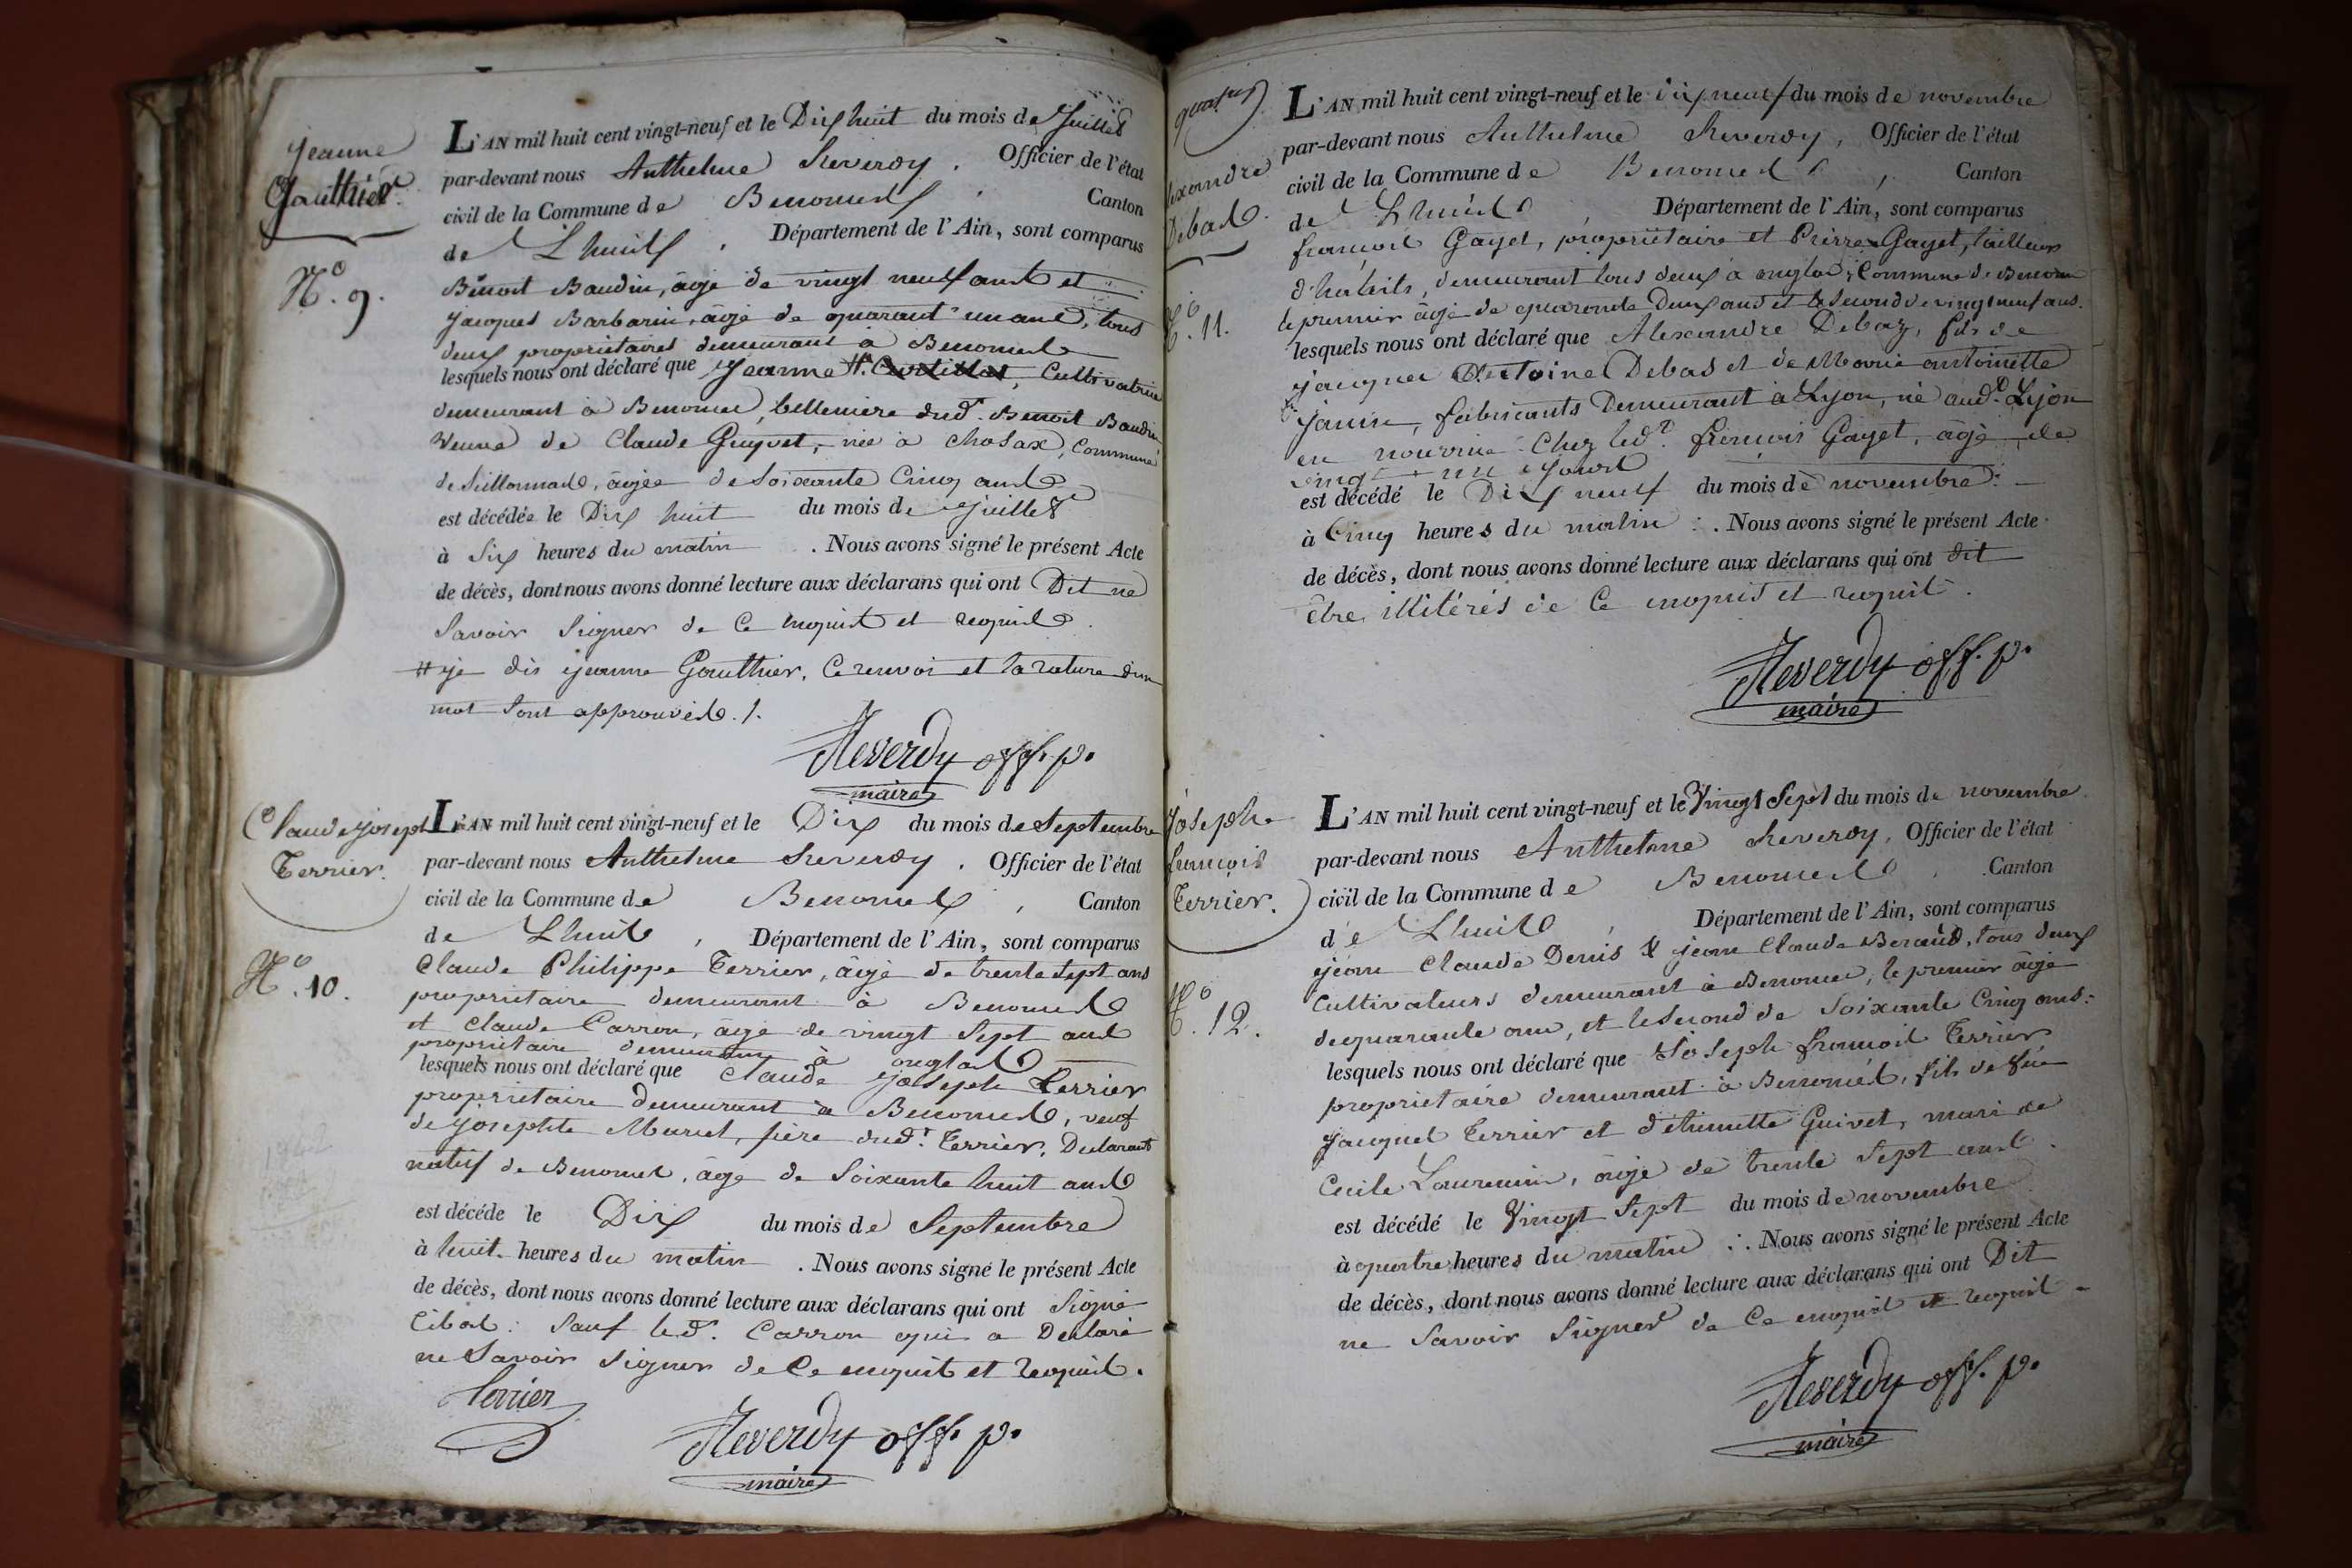 Jeanne
Gauthier.
N.º 9.
L'AN mil huit cent vingt-neuf et le Dix huit du mois de Juillet
par-devant nous Anthelme Reverdy, Officier de l'état
civil de la Commune de Benonces, Canton
de Lhuis, Département de l'Ain, sont comparus
Benoit Baudin, âgé de vingt neuf ans et
jacques Barbarin, âgé de quarant'un ans, tous
deux propriétaires demeurant à Benonces
lesquels nous ont déclaré que Jeanne #. Cultivatrice
demeurant à Benonces, bellemère dud.t Benoit Baudin
Veuve de Claude Guyvet, née à Chosax, Commune
de Seillonnas, âgée de soixante Cinq ans
est décédée le Dix huit du mois de Juillet
à Six heures du matin. Nous avons signé le présent Acte
de décès, dont nous avons donné lecture aux déclarans qui ont Dit ne
Savoir Signer de Ce enquis et requis.
# je dis jeanne Gauthier, Ce renvoi et la rature d'un
mot sont approuvés./.
Reverdy off. p.
maire
Claude joseph
Terrier.
N.º 10.
L'AN mil huit cent vingt-neuf et le Dix du mois de Septembre
par-devant nous Anthelme Reverdy, Officier de l'état
civil de la Commune de Benonces, Canton
de Lhuis, Département de l'Ain, sont comparus
Claude Philippe Terrier, âgé de trente sept ans
propriétaire demeurant à Benonces
et Claude Carron, âgé de vingt Sept ans
propriétaire demeurant à onglas
lesquels nous ont déclaré que Claude Joseph Terrier
propriétaire demeurant à Benonces, veuf
de josephte Muret, père dud.t Terrier, Déclarant
natif de Benonces, âgé de Soixante huit ans
est décédé le Dix du mois de Septembre
à huit heures du matin. Nous avons signé le présent Acte
de décès, dont nous avons donné lecture aux déclarans qui ont Signé
Cibas: Sauf led.t Carron qui a Déclaré
ne Savoir Signer de Ce enquis et requis.
Terrier
Reverdy off. p.
maire
quatre
lexandre
Debas.
N.º 11.
L'AN mil huit cent vingt-neuf et le dix neuf du mois de novembre
par-devant nous Anthelme Reverdy, Officier de l'état
civil de la Commune de Benonces, Canton
de Lhuis, Département de l'Ain, sont comparus
françois Gayet, propriétaire et Pierre Gayet, tailleur
d'habits, demeurant tous deux à onglas, Commune de Benonces
le premier âgé de quarante Deux ans et le second de vingt neuf ans.
lesquels nous ont déclaré que Alexandre Debaz, fils de
jacques Antoine Debas et de Marie antoinette
Janin, fabricants Demeurant à Lyon, né aud.t Lyon
en nourrice Chez led.t françois Gayet, âgé de
vingt un jours
est décédé le Dix neuf du mois de novembre:
à Cinq heures du matin:. Nous avons signé le présent Acte
de décès, dont nous avons donné lecture aux déclarans qui ont dit
être illitérés de Ce enquis et requis.
Reverdy off. p.
maire
Joseph
françois
Terrier.
N.º 12.
L'AN mil huit cent vingt-neuf et le Vingt Sept du mois de novembre
par-devant nous Anthelme Reverdy, Officier de l'état
civil de la Commune de Benonces, Canton
de Lhuis, Département de l'Ain, sont comparus
jean Claude Denis & jean Claude Beraud, tous deux
Cultivateurs demeurant à Benonces, le premier âgé
de quarante ans, et le second de Soixante Cinq ans:
lesquels nous ont déclaré que Joseph françois Terrier
propriétaire demeurant à Benonces, fils de feu
jacques Terrier et d'étiennette Guivet, mari de
Cecile Laurencin, âgé de trente Sept ans.
est décédé le Vingt Sept du mois de novembre
à quatre heures du matin:. Nous avons signé le présent Acte
de décès, dont nous avons donné lecture aux déclarans qui ont Dit
ne Savoir Signer de Ce enquis et requis.
Reverdy off. p.
maire